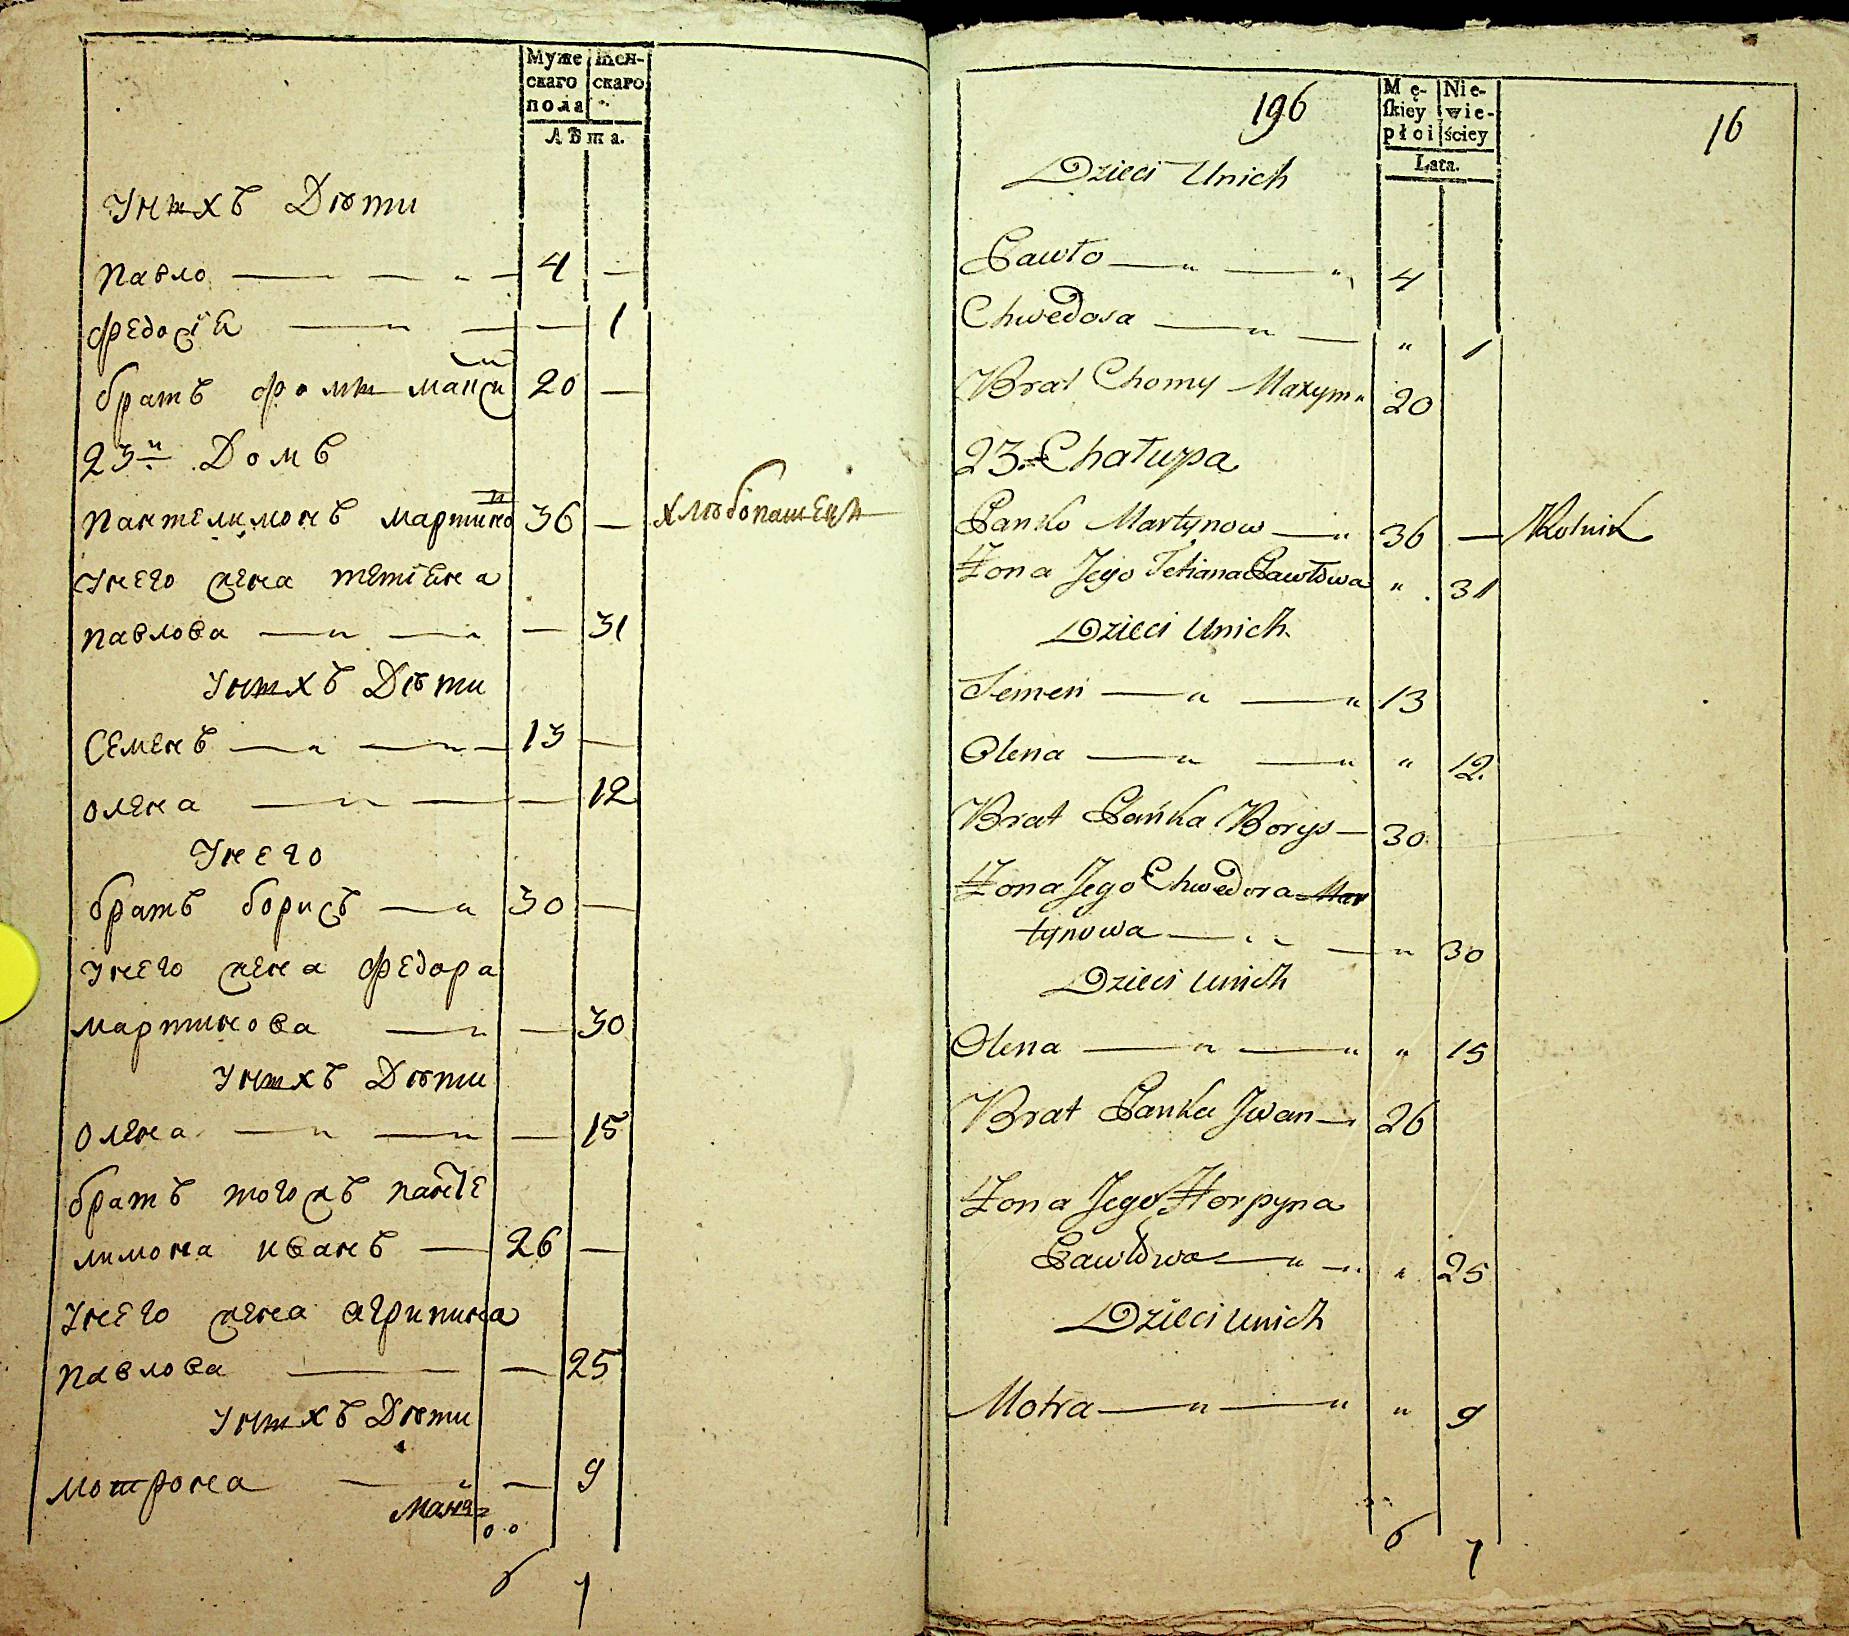 Муже скаго пола
Жен- скаго
Лѣта.
Унихъ Дѣти
Павло 4 —
Федосїя — 1
братъ Фоми Макси 20 —
23й Домъ
Пантелимонъ Мартино 36 — хлѣбопашецъ
Унего жена Тетїяна
Павлова — 31
Унихъ Дѣти
Семенъ 13 —
Олена — 12
Унего
братъ борисъ 30 —
Унего жена Федора
Мартинова — 30
Унихъ Дѣти
Олена — 15
братъ тогожъ панте
лимона иванъ 26 —
Унего жена агрипина
Павлова — 25
Унихъ Дѣти
Мотрона — 9
6 7
196
Mę- skiey płci
Nie- wie- ściey
Lata.
16
Dzieci Unich
Pawło 4
Chwedosia " 1
Brat Chomy Maxym 20
23. Chałupa
Pańko Martynow 36 — Rolnik
Żona Jego Tetiana Pawłowa " 31
Dzieci Unich
Semen 13
Olena " 12
Brat Pańka Borys 30
Żona Jego Chwedora Mar
tynowa " 30
Dzieci Unich
Olena " 15
Brat Pańka Jwan 26
Żona Jego Horpyna
Pawłowa " 25
Dzieci Unich
Motra " 9
6 7